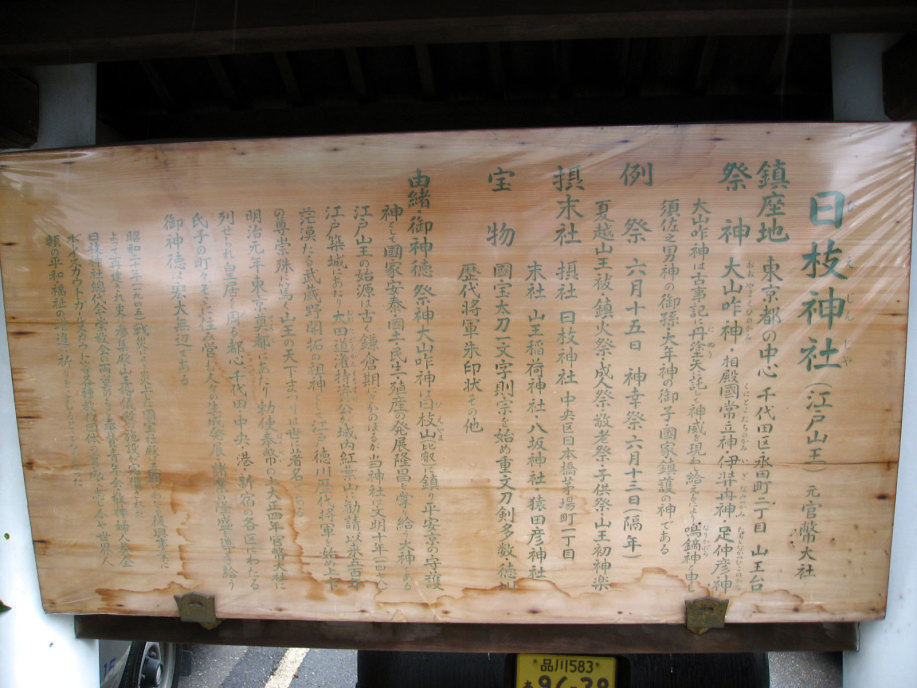 日枝神社(江戸山王) 元官幣大社
鎮座地 東京都の中心 千代田区永田町二丁目 山王台
祭神 大山咋神・相殿国常立神・伊弉冉神・足仲彦神
大山咋神は古事記に丹塗矢に託して神威を現わし給えるより鳴鏑神と申し
須佐之男神の御孫大年神の御子・国家鎮護の神である
例祭 六月十五日 神幸祭六月十三日(隔年)
夏越山王祓・鎮火祭・成人祭・敬老祭・子供祭・山王初神楽
摂末社 摂社日枝神社 中央区日本橋茅場町一丁目
末社 山王稲荷神社・八坂神社・猿田彦神社
宝物 国宝太刀一文字則宗を始め重文刀剣多数徳川
歴代将軍朱印状その他
由緒・御神徳 祭神大山咋神は日枝山(比叡)に鎮り平安京の守護
神として国家安泰・国土民生・殖産の発展隆昌の掌り給う大神である
江戸山王の始源は古く鎌倉期にさかのぼるが当神社は文明十年(一四七八)
江戸築城にあたり太田道灌持資公が城内紅葉山に勧請以来五百年
茫漠たる武蔵野開拓の祖神として江戸・徳川歴代将軍を始め
の尊崇殊に篤く山王の天下まつりは世に著名である
明治元年東京奠都にあたり勅使奉幣あり大正四年官幣大社に
列せられ皇居の周る都心千代田・中央・港・新宿の各区にわたる
氏子の町々そこに住み営む人々の生成発展と諸業の隆盛を護り給う
御神徳は宏大無辺である
昭和二十年(一九四五)戦災により
日枝神社
ボーイスカウト
頼の平和
品川583
96-39
15